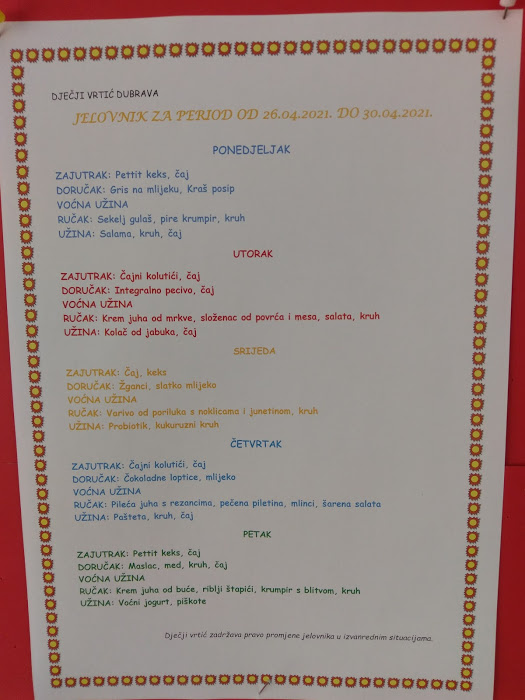 DJEČJI VRTIĆ DUBRAVA
JELOVNIK ZA PERIOD OD 26.04.2021. DO 30.04.2021.
PONEDJELJAK
ZAJUTRAK: Pettit keks, čaj
DORUČAK: Gris na mlijeku, Kraš posip
VOĆNA UŽINA
RUČAK: Sekelj gulaš, pire krumpir, kruh
UŽINA: Salama, kruh, čaj
UTORAK
ZAJUTRAK: Čajni kolutići, čaj
DORUČAK: Integralno pecivo, čaj
VOĆNA UŽINA
RUČAK: Krem juha od mrkve, složenac od povrća i mesa, salata, kruh
UŽINA: Kolač od jabuka, čaj
SRIJEDA
ZAJUTRAK: Čaj, keks
DORUČAK: Žganci, slatko mlijeko
VOĆNA UŽINA
RUČAK: Varivo od poriluka s noklicama i junetinom, kruh
UŽINA: Probiotik, kukuruzni kruh
ČETVRTAK
ZAJUTRAK: Čajni kolutići, čaj
DORUČAK: Čokoladne loptice, mlijeko
VOĆNA UŽINA
RUČAK: Pileća juha s rezancima, pečena piletina, mlinci, šarena salata
UŽINA: Pašteta, kruh, čaj
PETAK
ZAJUTRAK: Pettit keks, čaj
DORUČAK: Maslac, med, kruh, čaj
VOĆNA UŽINA
RUČAK: Krem juha od buče, riblji štapići, krumpir s blitvom, kruh
UŽINA: Voćni jogurt, piškote
Dječji vrtić zadržava pravo promjene jelovnika u izvanrednim situacijama.